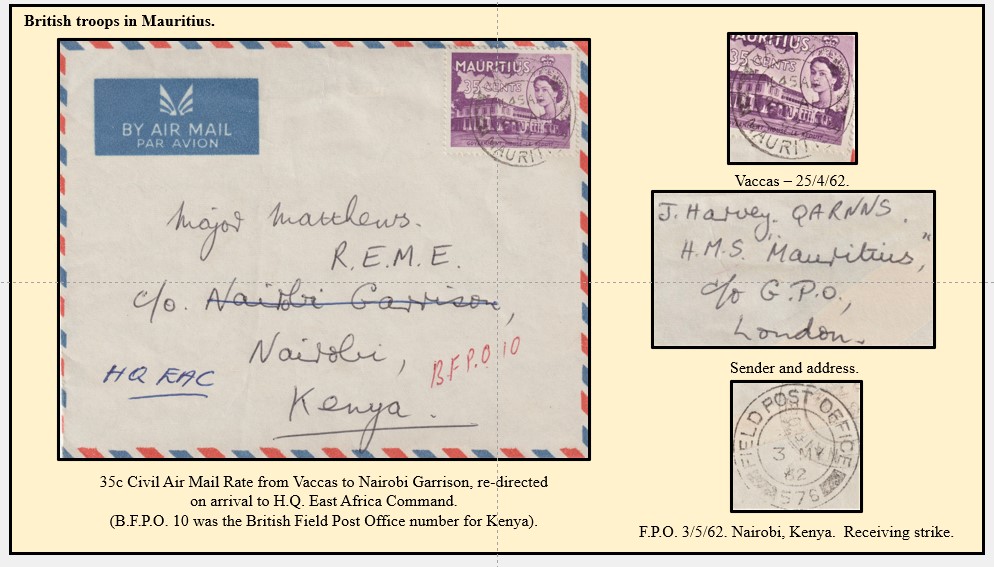 British troops in Mauritius.
BY AIR MAIL
PAR AVION
MAURITIUS
35 CENTS
MAURIT
Major Matthews.
R.E.M.E.
c/o. Nairobi Garrison,
Nairobi,
B.F.P.O 10
HQ EAC
Kenya.
35c Civil Air Mail Rate from Vaccas to Nairobi Garrison, re-directed
on arrival to H.Q. East Africa Command.
(B.F.P.O. 10 was the British Field Post Office number for Kenya).
MAURITIUS
35 CENTS
MAURIT
Vaccas – 25/4/62.
J. Harvey. QARNNS.
H.M.S. "Mauritius,"
c/o G.P.O.,
London.
Sender and address.
FIELD POST OFFICE
3 MY
62
576
F.P.O. 3/5/62. Nairobi, Kenya. Receiving strike.